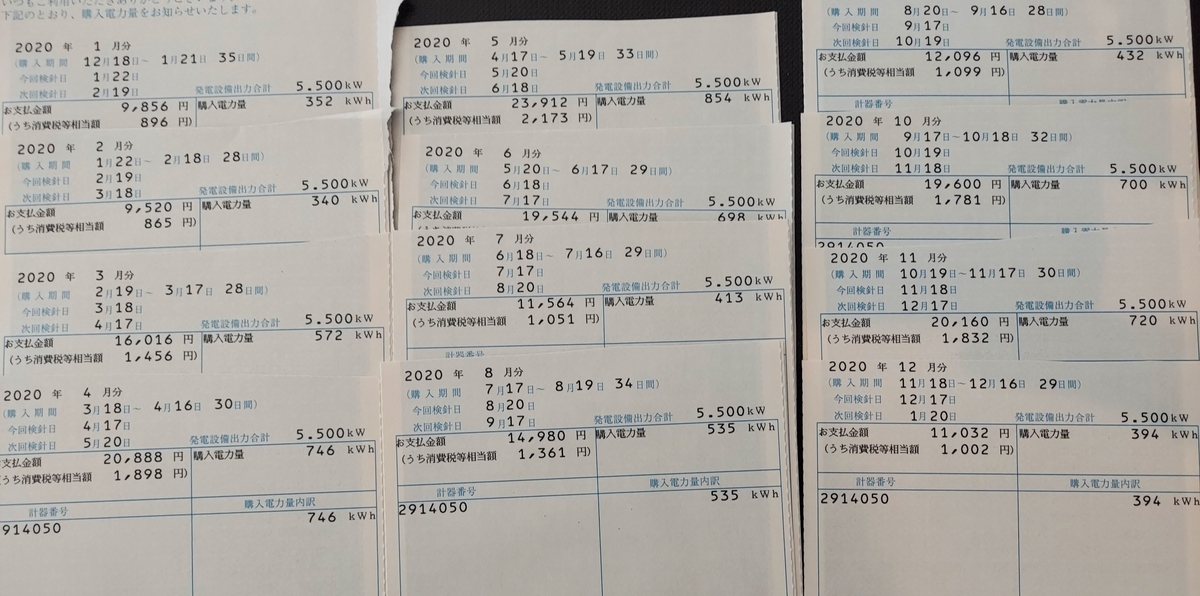 下記のとおり、購入電力量をお知らせいたします。
2020 年 1 月分
(購入期間 12月18日~ 1月21日 35日間)
今回検針日 1月22日
次回検針日 2月19日 発電設備出力合計 5.500kW
お支払金額 9,856 円 購入電力量 352 kWh
(うち消費税等相当額 896 円)
2020 年 2 月分
(購入期間 1月22日~ 2月18日 28日間)
今回検針日 2月19日
次回検針日 3月18日 発電設備出力合計 5.500kW
お支払金額 9,520 円 購入電力量 340 kWh
(うち消費税等相当額 865 円)
2020 年 3 月分
(購入期間 2月19日~ 3月17日 28日間)
今回検針日 3月18日
次回検針日 4月17日 発電設備出力合計 5.500kW
お支払金額 16,016 円 購入電力量 572 kWh
(うち消費税等相当額 1,456 円)
2020 年 4 月分
(購入期間 3月18日~ 4月16日 30日間)
今回検針日 4月17日
次回検針日 5月20日 発電設備出力合計 5.500kW
支払金額 20,888 円 購入電力量 746 kWh
(うち消費税等相当額 1,898 円)
計器番号 購入電力量内訳
914050 746 kWh
2020 年 5 月分
(購入期間 4月17日~ 5月19日 33日間)
今回検針日 5月20日
次回検針日 6月18日 発電設備出力合計 5.500kW
お支払金額 23,912 円 購入電力量 854 kWh
(うち消費税等相当額 2,173 円)
2020 年 6 月分
(購入期間 5月20日~ 6月17日 29日間)
今回検針日 6月18日
次回検針日 7月17日 発電設備出力合計 5.500kW
お支払金額 19,544 円 購入電力量 698 kWh
2020 年 7 月分
(購入期間 6月18日~ 7月16日 29日間)
今回検針日 7月17日
次回検針日 8月20日 発電設備出力合計 5.500kW
お支払金額 11,564 円 購入電力量 413 kWh
(うち消費税等相当額 1,051 円)
計器番号
2020 年 8 月分
(購入期間 7月17日~ 8月19日 34日間)
今回検針日 8月20日
次回検針日 9月17日 発電設備出力合計 5.500kW
お支払金額 14,980 円 購入電力量 535 kWh
(うち消費税等相当額 1,361 円)
計器番号 購入電力量内訳
2914050 535 kWh
(購入期間 8月20日~ 9月16日 28日間)
今回検針日 9月17日
次回検針日 10月19日 発電設備出力合計 5.500kW
お支払金額 12,096 円 購入電力量 432 kWh
(うち消費税等相当額 1,099 円)
計器番号
2020 年 10 月分
(購入期間 9月17日~10月18日 32日間)
今回検針日 10月19日
次回検針日 11月18日 発電設備出力合計 5.500kW
お支払金額 19,600 円 購入電力量 700 kWh
(うち消費税等相当額 1,781 円)
計器番号
2914050
2020 年 11 月分
(購入期間 10月19日~11月17日 30日間)
今回検針日 11月18日
次回検針日 12月17日 発電設備出力合計 5.500kW
お支払金額 20,160 円 購入電力量 720 kWh
(うち消費税等相当額 1,832 円)
2020 年 12 月分
(購入期間 11月18日~12月16日 29日間)
今回検針日 12月17日
次回検針日 1月20日 発電設備出力合計 5.500kW
お支払金額 11,032 円 購入電力量 394 kWh
(うち消費税等相当額 1,002 円)
計器番号 購入電力量内訳
2914050 394 kWh